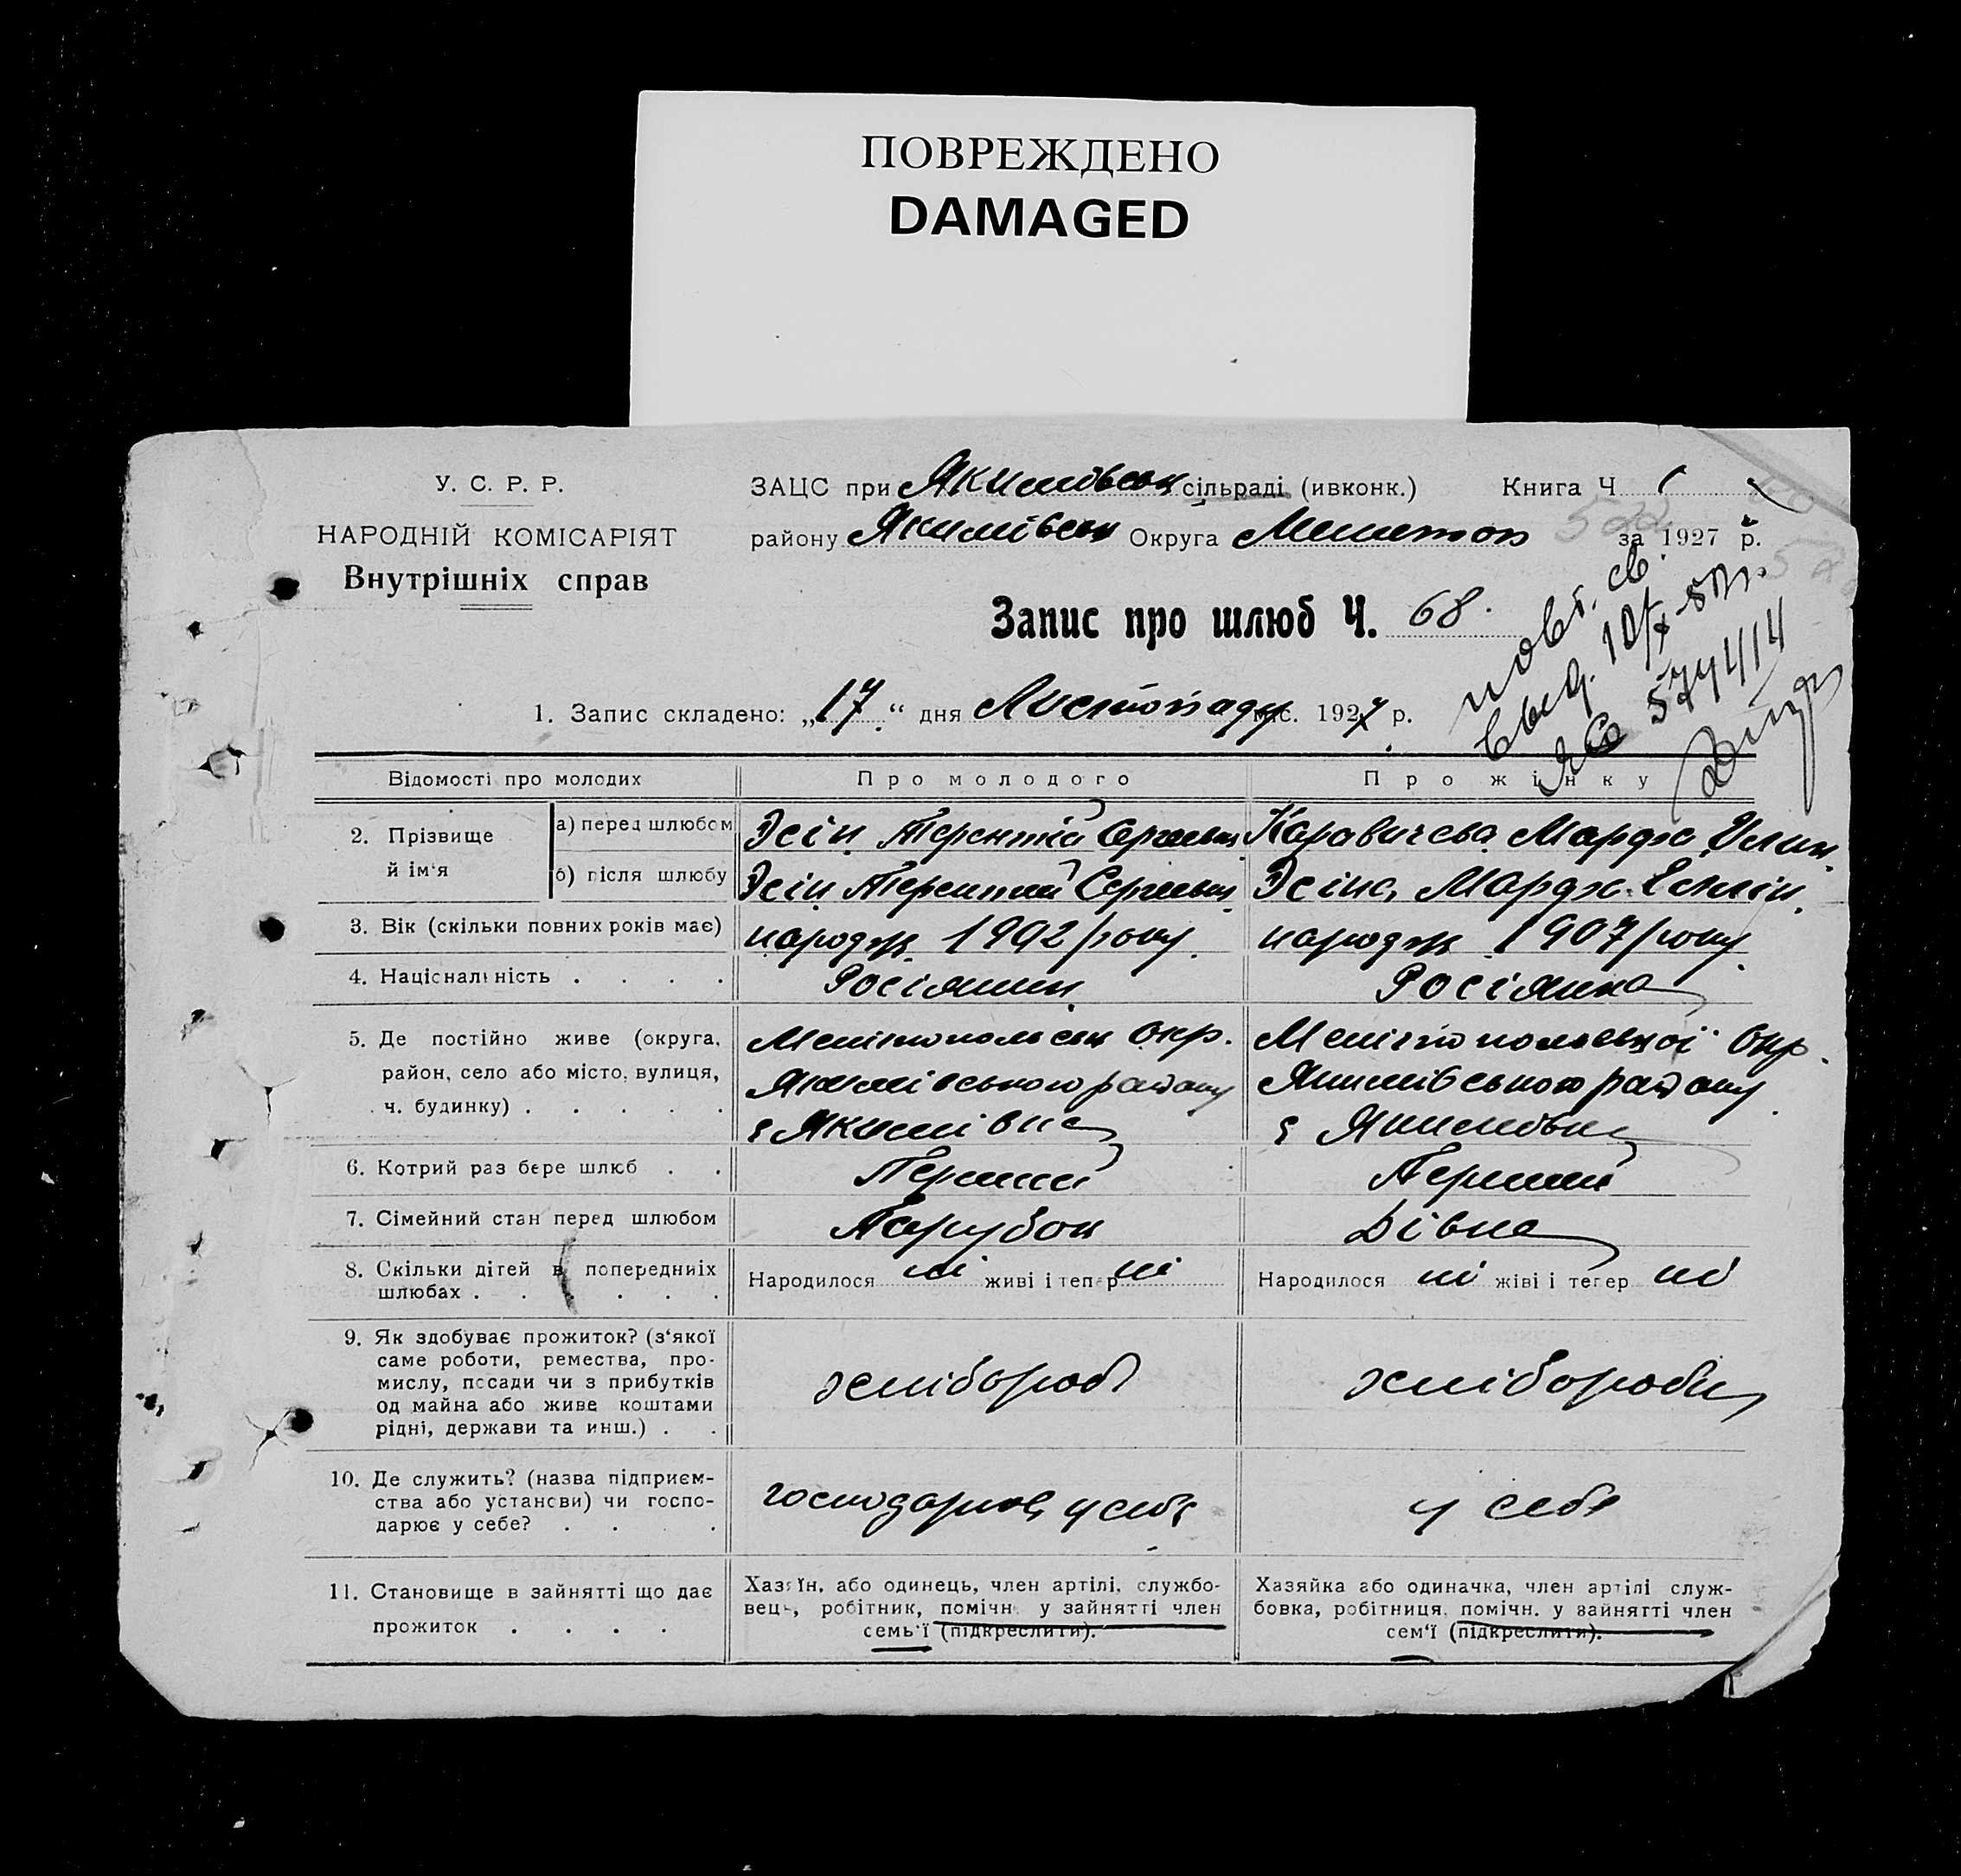 ПОВРЕЖДЕНО
DAMAGED
У. С. Р. Р.
НАРОДНІЙ КОМІСАРІЯТ
Внутрішніх справ
ЗАЦС при Якимовськ сільраді (ивконк.) Книга Ч 1
району Якимівськ Округа Мелитоп 522 за 1927 р.
Запис про шлюб Ч. 68.
повт. св.
выд. 10/X
574414
1. Запис складено: „17“ дня Листопаду міс. 1927 р.
Відомості про молодих Про молодого Про жінку
2. Прізвище й ім‘я
а) перед шлюбом Терентій Сергеевич Марфа
б) після шлюбу Терентий Сергеевич Марфа
3. Вік (скільки повних років має) народж 1902 року народж 1907 року
4. Національність . . . . Росіянин Росіянка
5. Де постійно живе (округа, район, село або місто, вулиця, ч. будинку) . . . . .
Мелітопольськ Окр. Мелітопольської Окр.
Якимівського району Якимівського району
с Якимівка с Якимовка
6. Котрий раз бере шлюб . . Перший Перший
7. Сімейний стан перед шлюбом Парубок Дівка
8. Скільки дітей в попередніх шлюбах . . . . . . Народилося ні живі і тепер ні Народилося ні жіві і тепер ні
9. Як здобуває прожиток? (з‘якої
саме роботи, ремества, про-
мислу, посади чи з прибутків
од майна або живе коштами
рідні, держави та инш.) . .
хлібороб хлібороб
10. Де служить? (назва підприєм-
ства або установи) чи госпо-
дарює у себе? . . . .
господарює у себе у себе
11. Становище в зайнятті що дає
прожиток . . . .
Хазяїн, або одинець, член артілі, службо-
вець, робітник, помічн. у зайнятті член
семь‘ї (підкреслити).
Хазяйка або одиначка, член артілі служ-
бовка, робітниця, помічн. у зайнятті член
сем‘ї (підкреслити).